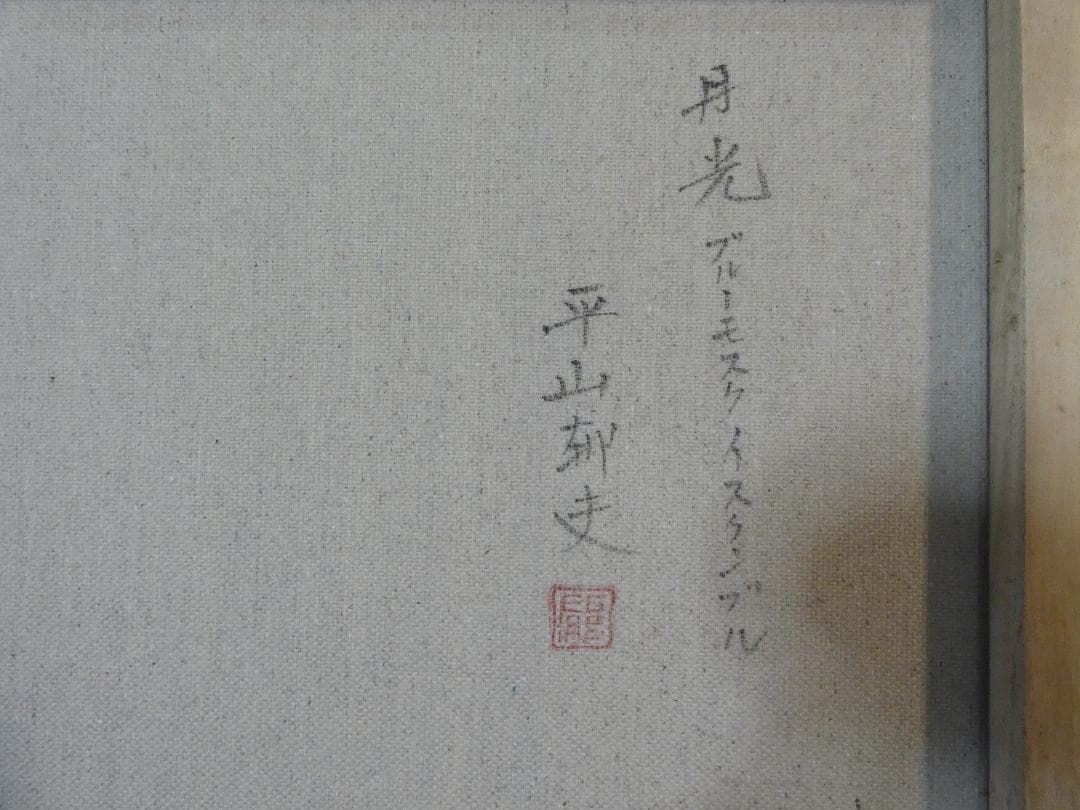 月光 ブルーモスク イスタンブル
平山郁夫